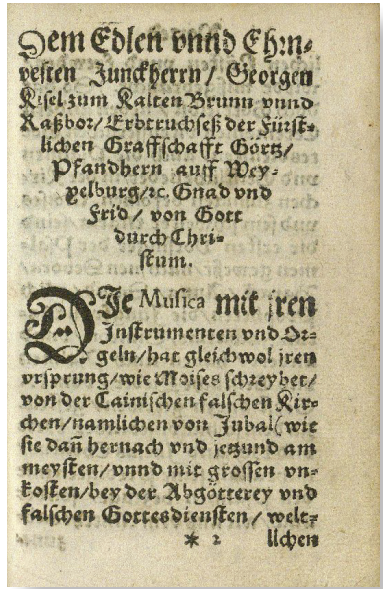 Dem Edlen vnnd Ehrn⸗
vesten Junckherrn/ Georgen
Kisel zum Kalten Brunn vnnd
Kaßbor/ Erbtruchseß der Fürst⸗
lichen Graffschafft Görtz/
Pfandhern auff Wey⸗
pelburg/ ꝛc. Gnad vnd
Frid/ von Gott
durch Chri⸗
stum.
DIe Musica mit jren
Instrumenten vnd Or⸗
geln/ hat gleichwol jren
vrsprung/ wie Moises schreybet/
von der Cainischen falschen Kir⸗
chen/ namlichen von Jubal (wie
sie dañ hernach vnd jetzund am
meysten/ vnnd mit grossen vn⸗
kosten/ bey der Abgötterey vnd
falschen Gottesdiensten/ welt⸗
* 2 lichen